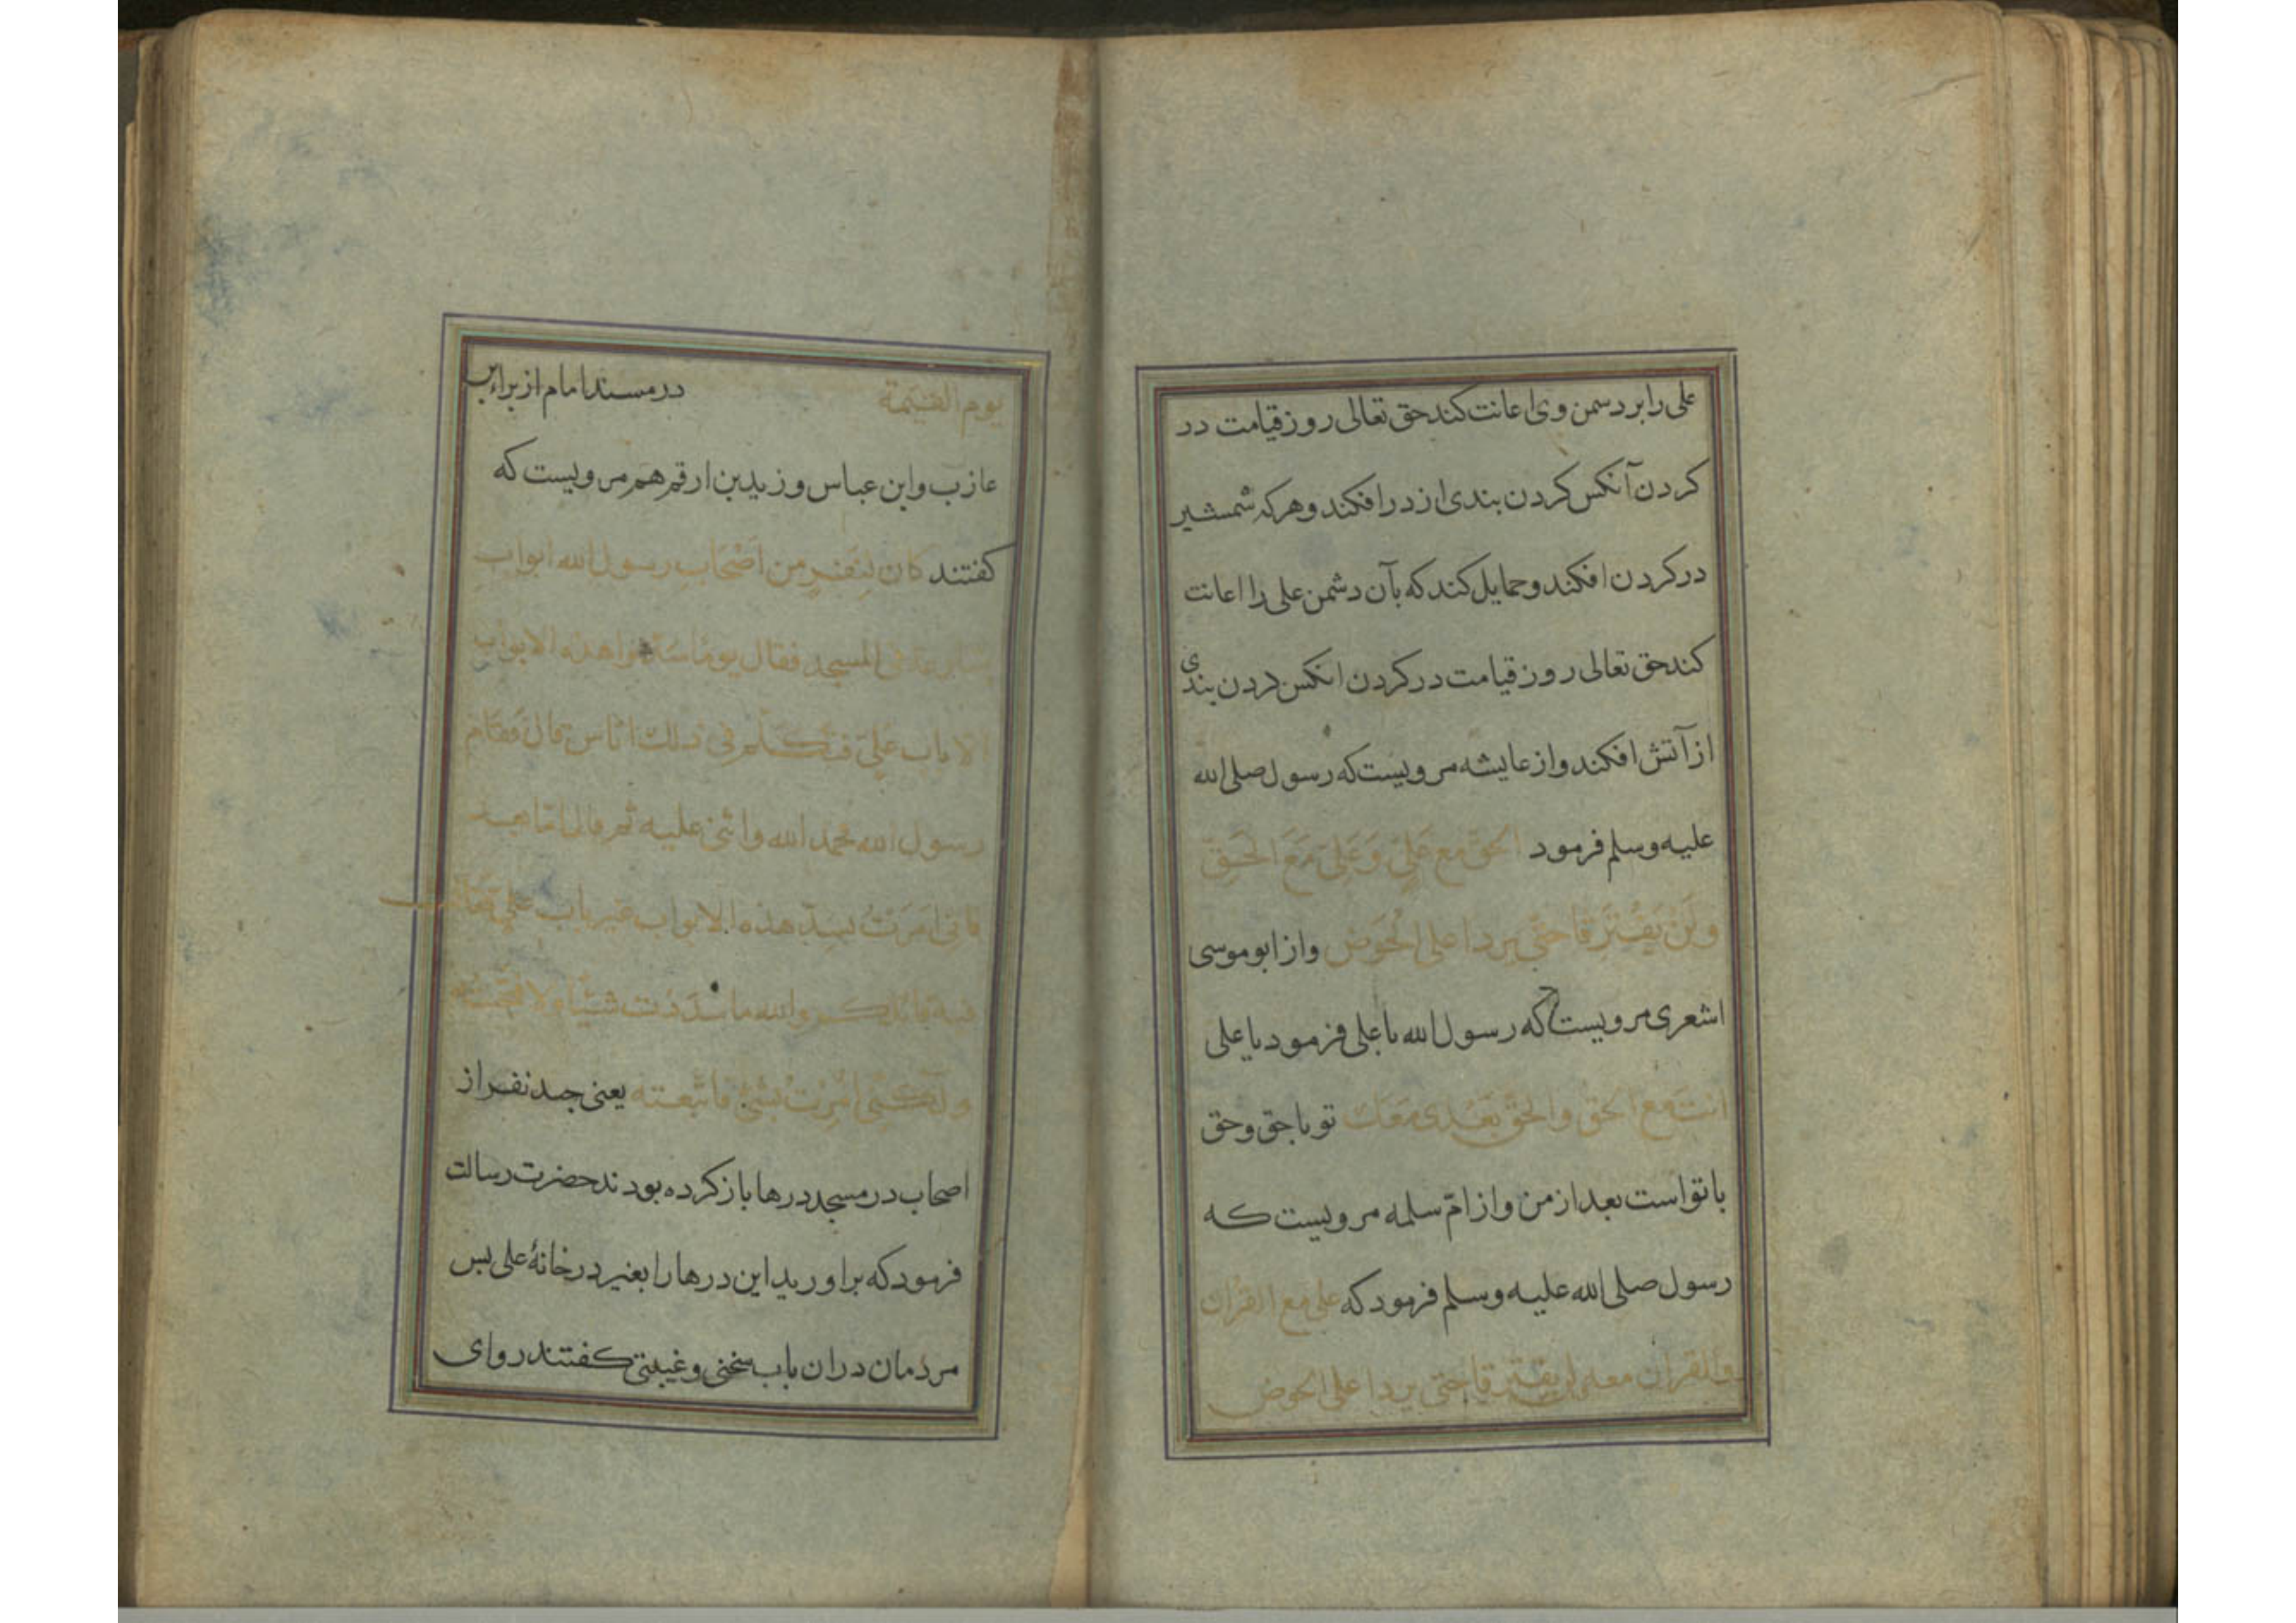 علی را بر دسمن وی اعانت کند حق تعالی روز قیامت در
کردن آنکس کردن بندی از در افکند و هرکه شمشیر
در کردن افکند و حمایل کند که بآن دشمن علی را اعانت
کند حق تعالی روز قیامت در کردن انکس کردن بندی
از آتش افکند و از عایشه مرویست که رسول صلی الله
علیه وسلم فرمود الحق مع علی و علی مع الحق
ولن یفترقا حتی یردا علی الحوض واز ابوموسی
اشعری مرویست که رسول الله با علی فرمود یا علی
انت مع الحق والحق بعدی معک تو با حق و حق
با تو است بعد از من و از ام سلمه مرویست که
رسول صلی الله علیه وسلم فرمود که علی مع القران
والقران معه لن یفترقا حتی یردا علی الحوض
یوم القیمة در مسند امام از براء بن
عازب و ابن عباس و زید بن ارقم هم مرویست که
کفتند کان لنفر من اصحاب رسول الله ابواب
فی المسجد فقال یوما سدوا هذه الابواب
الا باب علی فتکلم فی ذلک اناس قال فقام
رسول الله محمد الله واثنی علیه ثم قال اما بعد
فانی امرت بسد هذه الابواب غیر باب علی فقال
فیه قائلکم والله ما سددت شیئا ولا فتحته
ولکنی امرت بشئ فاتبعته یعنی جند نفر از
اصحاب در مسجد درها باز کرده بودند حضرت رسالت
فرمود که براورید این درها را بغیر در خانهٔ علی بس
مردمان دران باب سخنی و غیبتی کفتند روای